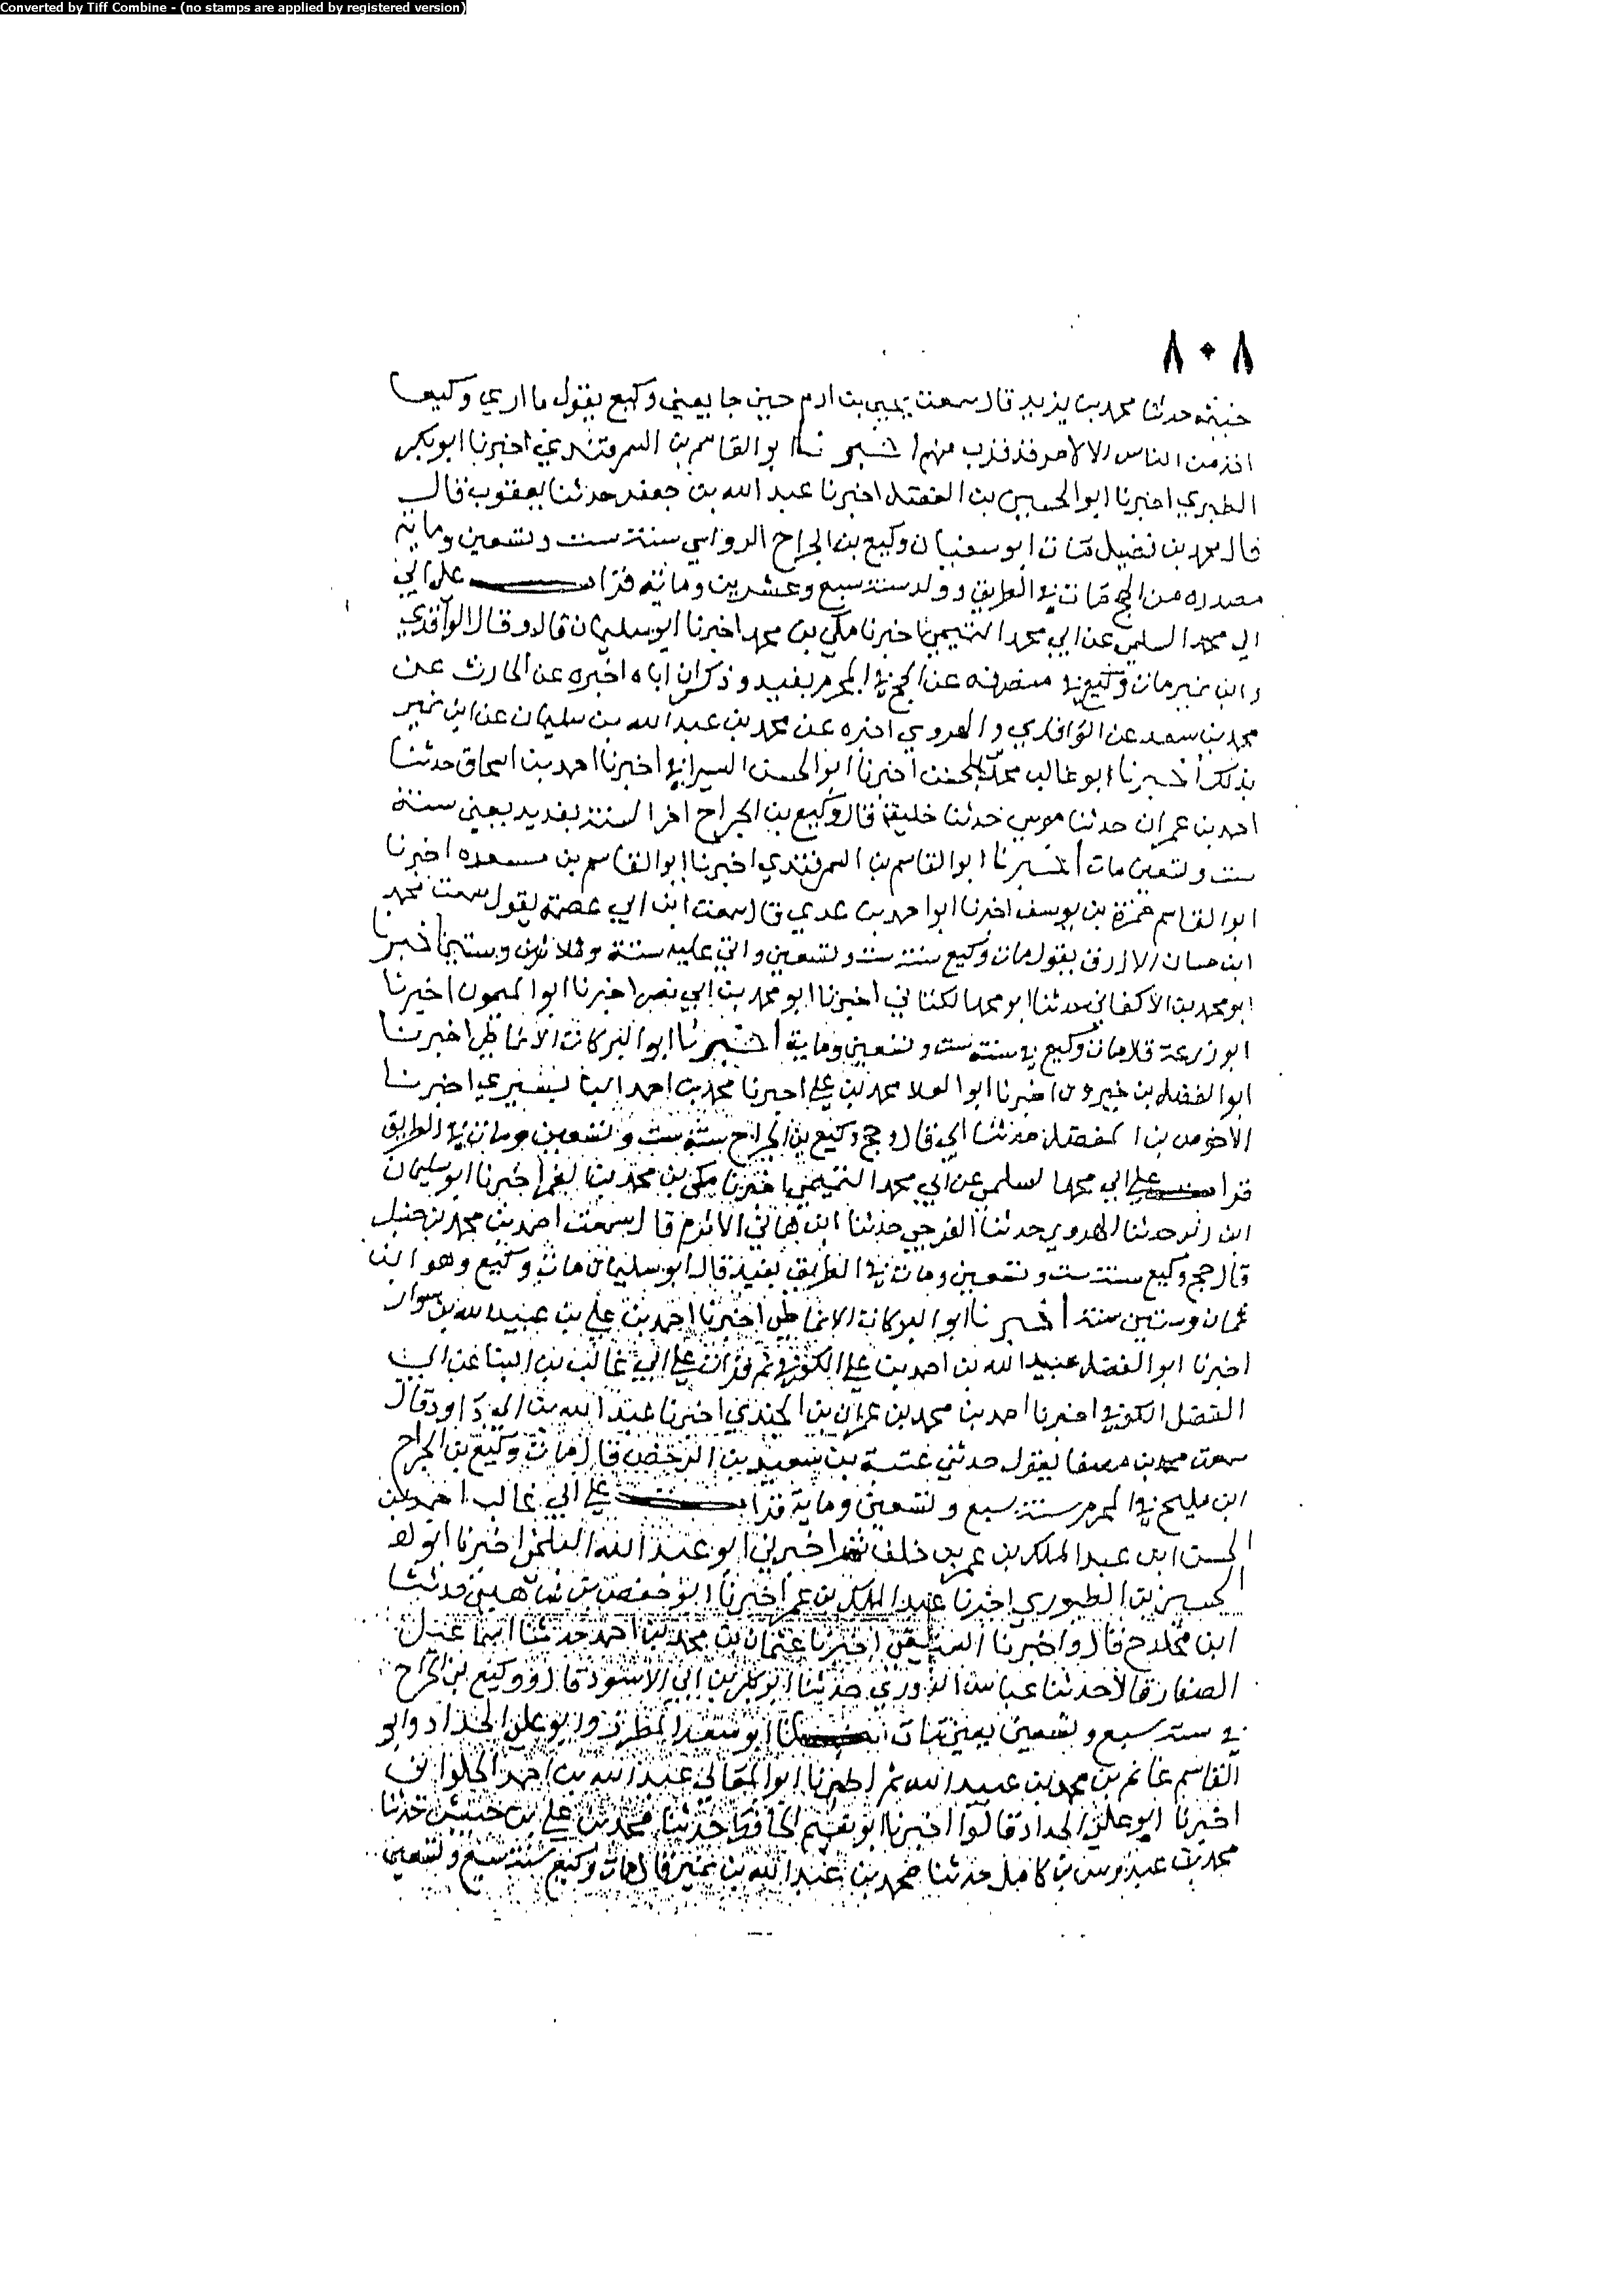 Converted by Tiff Combine - (no stamps are applied by registered version)
٨٠٨
حدثنا محمد بن يزيد قال سمعت يحيى بن ادم حين جا يعني وكيع يقول ما اري وكيعا
من الناس الا لامر قد قرب منهم اخبرنا ابو القاسم بن السمرقندي اخبرنا ابو بكر
الطبري اخبرنا ابو الحسين بن الفضل اخبرنا عبد الله بن جعفر حدثنا يعقوب قال
قال محمد بن فضيل مات ابو سفيان وكيع بن الجراح الرواسي سنة ست وتسعين وماية
مصدره من الحج مات في الطريق وولد سنة سبع وعشرين وماية قرات علي ابي
ابي محمد السلمي عن ابي محمد التميمي اخبرنا مكي بن محمد اخبرنا ابو سليمان قال وقال الواقدي
وابن نمير مات وكيع في منصرفه عن الحج في المحرم بفيد وذكر ان اباه اخبره عن الحارث عن
محمد بن سعد عن الواقدي والهروي اخبره عن محمد بن عبد الله بن سليمان عن ابن نمير
بذلك اخبرنا ابو غالب محمد بن الحسن اخبرنا ابو الحسن السيرافي اخبرنا احمد بن اسحاق حدثنا
احمد بن عمران حدثنا موسي حدثنا خليفة قال وكيع بن الجراح اخر السنة بفيد يعني سنة
ست وتسعين مات اخبرنا ابو القاسم بن السمرقندي اخبرنا ابو القاسم بن مسعده اخبرنا
ابو القاسم حمزة بن يوسف اخبرنا ابو احمد بن عدي قال سمعت ابن ابي عصمة يقول سمعت محمد
ابن حسان الازرق يقول مات وكيع سنة ست وتسعين واتي عليه ستة وثلاثين وستين اخبرنا
ابو محمد بن الاكفاني حدثنا ابو محمد الكتاني اخبرنا ابو محمد بن ابي نصر اخبرنا ابو الميمون اخبرنا
ابو زرعة قال مات وكيع في سنة ست وتسعين وماية اخبرنا ابو البركات الانماطي اخبرنا
ابو الفضل بن خيرون اخبرنا ابو العلا محمد بن علي اخبرنا محمد بن احمد البابسيري اخبرنا
الاحوص بن المفضل حدثنا ابي قال وحج وكيع بن الجراح سنة ست وتسعين ومات في الطريق
قرات علي ابي محمد السلمي عن ابي محمد التميمي اخبرنا مكي بن محمد بن الغمر اخبرنا ابو سليمان
ابن زبر حدثنا الهروي حدثنا حدثنا ابن هاني الاثرم قال سمعت احمد بن محمد بن حنبل
قال حج وكيع سنة ست وتسعين ومات في الطريق بفيد قال ابو سليمان مات وكيع وهو ابن
ثمان وستين سنة اخبرنا ابو البركات الانماطي اخبرنا احمد بن علي بن عبيد الله بن سوار
اخبرنا ابو الفضل عبيد الله بن احمد بن علي الكوفي ثم قرات علي ابي غالب بن البنا عن ابي
الفضل الكوفي اخبرنا احمد بن محمد بن عمران بن الجندي اخبرنا عبد الله بن ابي داود قال
سمعت محمد بن مصفا يقول حدثني عتبة بن سعيد بن الرخص قال مات وكيع بن الجراح
ابن مليح في المحرم سنة سبع وتسعين وماية قرات علي ابي غالب احمد بن
الحسن ابن عبد الملك بن عمر بن خلف ثم اخبرني ابو عبد الله البلخي اخبرنا ابو
الحسين بن الطيوري اخبرنا عبد الملك بن عمر اخبرنا ابو حفص بن شاهين حدثنا
ابن مخلد ح قال واخبرنا العتيقي اخبرنا عثمان بن محمد بن احمد حدثنا اسماعيل
الصفار قالا حدثنا عباس الدوري حدثنا ابو بكر بن ابي الاسود قال ووكيع بن الجراح
في سنة سبع وتسعين يعني مات ابو سعد المطرز وابو علي الحداد وابو
القاسم غانم بن محمد بن عبيد الله ثم اخبرنا ابو المعالي عبد الله بن احمد الحلواني
اخبرنا ابو علي الحداد قالوا اخبرنا ابو نعيم الحافظ حدثنا محمد بن علي بن حبيش حدثنا
محمد بن عبدوس بن كامل حدثنا محمد بن عبد الله بن نمير قال مات وكيع سنة سبع وتسعين